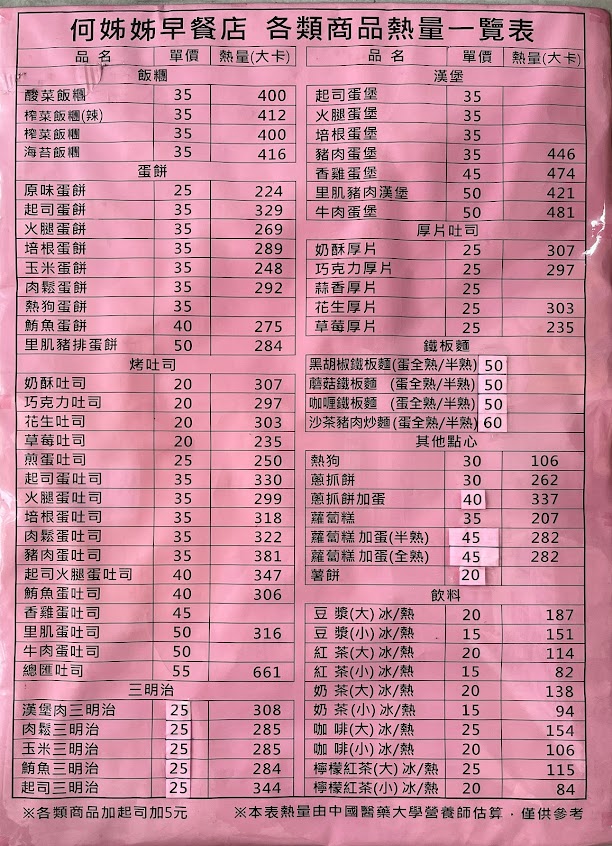 何姊姊早餐店 各類商品熱量一覽表
品名 單價 熱量(大卡)
飯糰
酸菜飯糰 35 400
榨菜飯糰(辣) 35 412
榨菜飯糰 35 400
海苔飯糰 35 416
蛋餅
原味蛋餅 25 224
起司蛋餅 35 329
火腿蛋餅 35 269
培根蛋餅 35 289
玉米蛋餅 35 248
肉鬆蛋餅 35 292
熱狗蛋餅 35
鮪魚蛋餅 40 275
里肌豬排蛋餅 50 284
烤吐司
奶酥吐司 20 307
巧克力吐司 20 297
花生吐司 20 303
草莓吐司 20 235
煎蛋吐司 25 250
起司蛋吐司 35 330
火腿蛋吐司 35 299
培根蛋吐司 35 318
肉鬆蛋吐司 35 322
豬肉蛋吐司 35 381
起司火腿蛋吐司 40 347
鮪魚蛋吐司 40 306
香雞蛋吐司 45
里肌蛋吐司 50 316
牛肉蛋吐司 50
總匯吐司 55 661
三明治
漢堡肉三明治 25 308
肉鬆三明治 25 285
玉米三明治 25 285
鮪魚三明治 25 284
起司三明治 25 344
品名 單價 熱量(大卡)
漢堡
起司蛋堡 35
火腿蛋堡 35
培根蛋堡 35
豬肉蛋堡 35 446
香雞蛋堡 45 474
里肌豬肉漢堡 50 421
牛肉蛋堡 50 481
厚片吐司
奶酥厚片 25 307
巧克力厚片 25 297
蒜香厚片 25
花生厚片 25 303
草莓厚片 25 235
鐵板麵
黑胡椒鐵板麵(蛋全熟/半熟) 50
蘑菇鐵板麵 (蛋全熟/半熟) 50
咖喱鐵板麵 (蛋全熟/半熟) 50
沙茶豬肉炒麵(蛋全熟/半熟) 60
其他點心
熱狗 30 106
蔥抓餅 30 262
蔥抓餅加蛋 40 337
蘿蔔糕 35 207
蘿蔔糕 加蛋(半熟) 45 282
蘿蔔糕 加蛋(全熟) 45 282
薯餅 20
飲料
豆 漿(大) 冰/熱 20 187
豆 漿(小) 冰/熱 15 151
紅 茶(大) 冰/熱 20 114
紅 茶(小) 冰/熱 15 82
奶 茶(大) 冰/熱 20 138
奶 茶(小) 冰/熱 15 94
咖 啡(大) 冰/熱 25 154
咖 啡(小) 冰/熱 20 106
檸檬紅茶(大) 冰/熱 25 115
檸檬紅茶(小) 冰/熱 20 84
※各類商品加起司加5元 ※本表熱量由中國醫藥大學營養師估算,僅供參考